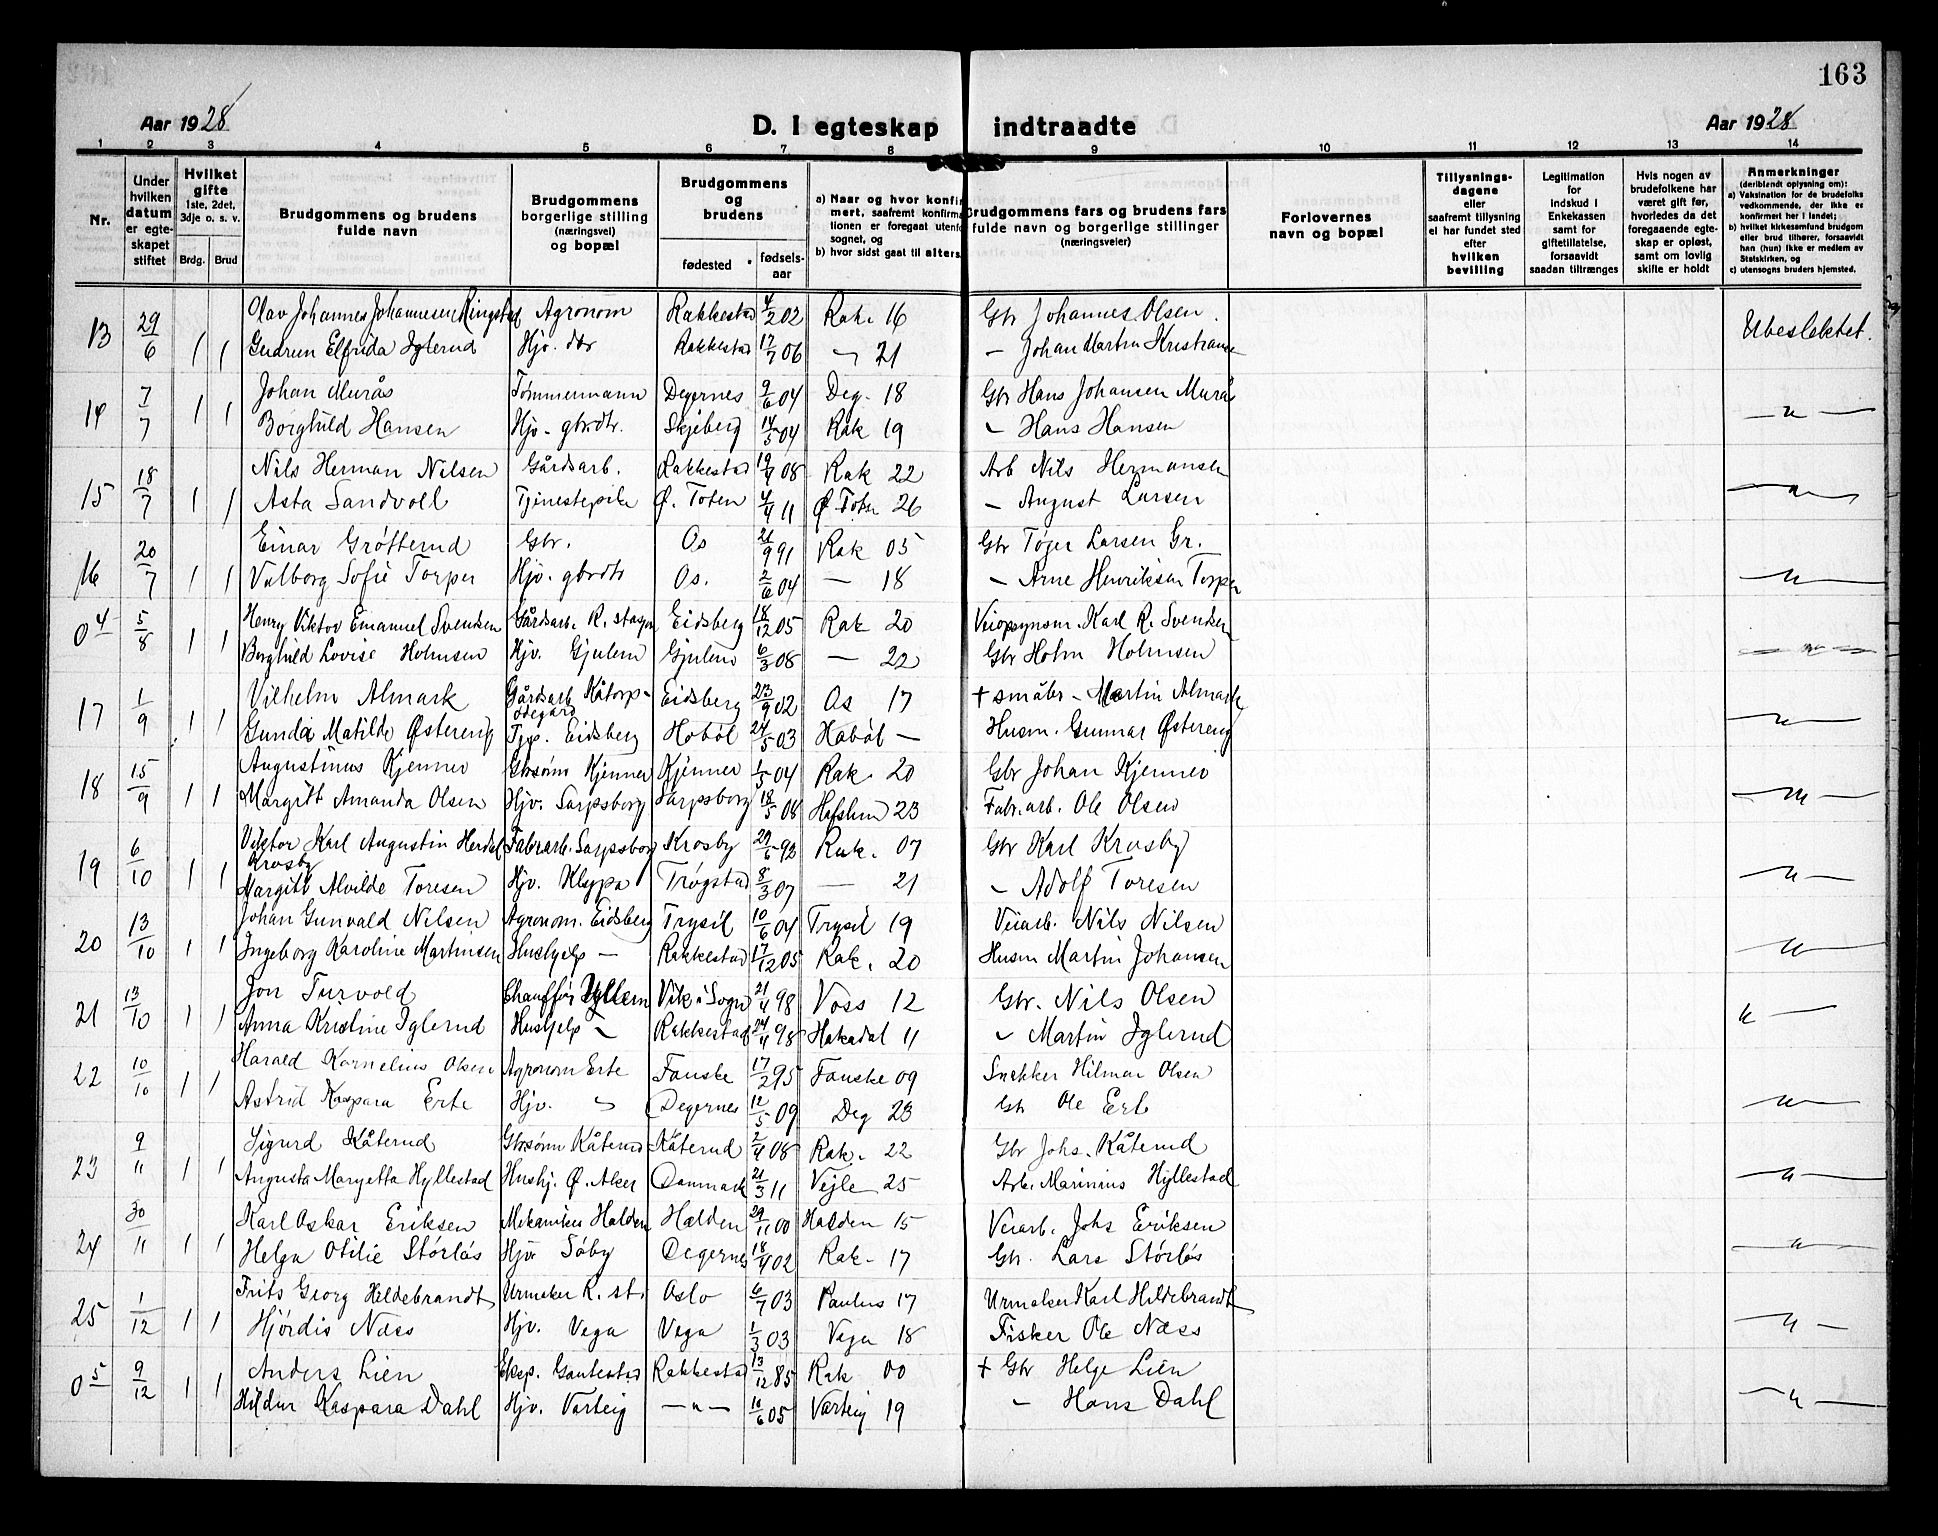 163
Aar 1928
D. I egteskap indtraadte
Aar 1928
1 2 3 4 5 6 7 8 9 10 11 12 13 14
Nr.
Under hvilken datum er egteskapet stiftet
Hvilket gifte 1ste, 2det, 3dje o. s. v.
Brdg. Brud
Brudgommens og brudens fulde navn
Brudgommens borgerlige stilling (næringsvei) og bopæl
Brudgommens og brudens
fødested fødsels-aar
a) Naar og hvor konfirmert, saafremt konfirmationen er foregaat utenfor sognet, og
b) hvor sidst gaat til alters.
Brudgommens fars og brudens fars fulde navn og borgerlige stillinger (næringsveier)
Forlovernes navn og bopæl
Tillysningsdagene eller saafremt tillysning ei har fundet sted efter hvilken bevilling
Legitimation for indskud i Enkekassen samt for giftetillatelse, forsaavidt saadan tiltrænges
Hvis nogen av brudefolkene har været gift før, hvorledes da det foregaaende egteskap er opløst, samt om lovlig skifte er holdt
Anmerkninger (deriblandt oplysning om):
a) Vaksination for de brudefolks vedkommende, der ikke er konfirmert her i landet;
b) hvilket kirkesamfund brudgom eller brud tilhører, forsaavidt han (hun) ikke er medlem av Statskirken, og
c) utensogns bruders hjemsted.
13 29/6 Olav Johannes Johannesen Ringstad Agronom Rakkestad 4/2 02 Rak. 16 Gbr Johannes Olsen. Ubeslektet.
1 1 Gudrun Elfrida Iglerud Hjv. dtr Rakkestad 17/7 06 " 21 — Johan Martin Kristiansen
14 7/7 1 1 Johan Murås Tømmermann Degernes 9/6 04 Deg. 18 Gbr Hans Johansen Murås — " —
Borghild Hansen Hjv. gbrdtr. Skjeberg 14/5 04 Rak 19 " Hans Hansen
15 18/7 1 1 Nils Herman Nilsen Gårdsarb. Rakkestad 19/9 08 Rak 22 Arb Nils Hermansen — " —
Asta Sandvoll Tjenestepike Ø. Toten 4/4 11 Ø. Toten 26 — August Larsen
16 20/7 1 1 Einar Grøtterud Gbr. Os 21/9 91 Rak 05 Gbr Tøger Larsen Gr. — " —
Valborg Sofie Torper Hjv. gbrdtr Os. 2/6 04 — 18 — Arne Henriksen Torper
04 5/8 1 1 Henry Viktor Emanuel Svendsen Gårdsarb. R. stasjon Eidsberg 18/12 05 Rak 20 Veiopsynsm. Karl R. Svendsen — " —
Borghild Lovise Holmsen Hjv. Gjulem Gjulem 6/3 08 — 22 Gbr Holm Holmsen
17 1/9 1 1 Vilhelm Almark Gårdsarb Kåtorp-ødegård Eidsberg 23/9 02 Os 17 + småbr — Martin Almark — " —
Gunda Matilde Østereng Tjp. Eidsberg Hobøl 24/5 03 Hobøl — Husm. Gunnar Østereng
18 15/9 1 1 Augustinus Kjenner Gbrsønn Kjenner Kjenner 1/5 04 Rak. 20 Gbr Johan Kjenner — " —
Margitt Amanda Olsen Hjv. Sarpsborg Sarpsborg 18/5 08 Hafslun 23 Fabr.arb. Ole Olsen
19 6/10 1 1 Viktor Karl Augustin Herdal Krosby Fabr.arb. Sarpsborg Krosby 29/6 92 Rak. 07 Gbr Karl Krosby — " —
Margitt Alvilde Toresen Hjv. Kleypa Trøgstad 8/3 07 — 21 " Adolf Toresen
20 13/10 1 1 Johan Gunvald Nilsen Agronom. Eidsberg Trysil 10/6 04 Trysil 19 Veiarb. Nils Nilsen — " —
Ingeborg Karoline Martinsen Hushjelp — Rakkestad 17/12 05 Rak. 20 Husm Martin Johansen
21 13/10 1 1 Jon Turvold Chauffør Vik i Sogn 21/4 98 Voss 12 Gbr. Nils Olsen " —
Anna Kristine Iglerud Hushjelp " Rakkestad 24/4 98 Hakadal 11 " Martin Iglerud
22 10/10 1 1 Harald Kornelius Olsen Agronom Erte Fauske 17/2 95 Fauske 09 Snekker Hilmar Olsen — " —
Astrid Kaspara Erte Hjv. " Degernes 12/5 09 Deg 23 Gbr Ole Erte
23 9/11 1 1 Sigurd Kåterud Gbrsønn Kåterud Kåterud 2/4 08 Rak. 22 Gbr Johs. Kåterud — " —
Augusta Margetta Hyllestad Hushj. Ø. Aker Danmark 21/3 11 Vejle 25 Arb. Marinius Hyllestad
24 30/11 1 1 Karl Oskar Eriksen Mekaniker Halden Halden 29/11 00 Halden 15 Veiarb. Johs Eriksen — " —
Helga Otilie Størlås Hjv Søby Degernes 18/4 02 Rak. 17 Gbr. Lars Størlås
25 1/12 1 1 Frits Georg Hildebrandt Urmaker R. st. Oslo 6/7 03 Paulus 17 Urmaker Karl Hildebrandt " —
Hjördis Næss Hjv. Vega Vega 1/3 03 Vega 18 Fisker Ole Næss
05 9/12 1 1 Anders Lien Eksp. Gautestad Rakkestad 13/12 85 Rak 00 + Gbr Helge Lien — " —
Hildur Kaspara Dahl Hjv. Varteig — " — 10/6 05 Varteig 19 — Hans Dahl